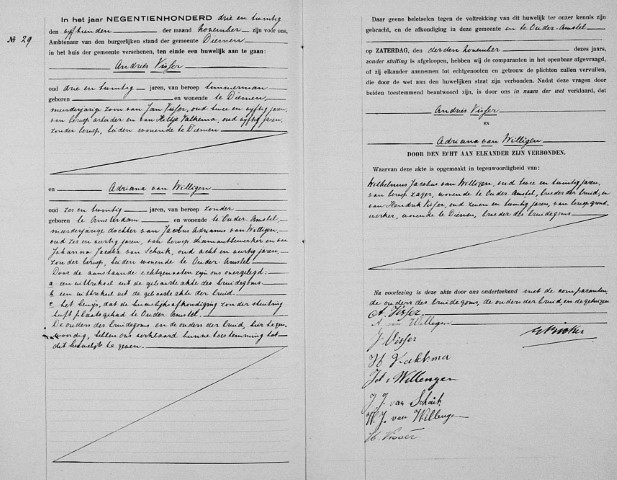 In het jaar NEGENTIENHONDERD drie en twintig
den vijftienden der maand november zijn voor ons,
Ambtenaar van den burgerlijken stand der gemeente Diemen
in het huis der gemeente verschenen, ten einde een huwelijk aan te gaan:
Nº 29
Andries Visser
oud drie en twintig jaren, van beroep timmerman
geboren en wonende te Diemen,
meerderjarige zoon van Jan Visser, oud twee en vijftig jaren,
van beroep arbeider en van Hiltje oud vijftig jaren,
zonder beroep, beiden wonende te Diemen
en Adriana van Willigen
oud zes en twintig jaren, van beroep zonder
geboren te Amsterdam en wonende te Ouder Amstel,
meerderjarige dochter van Jacobus Adrianus van Willigen,
oud zes en veertig jaren, van beroep en van
Johanna van Schaik, oud acht en veertig jaren,
zonder beroep, beiden wonende te Ouder Amstel.
Door de aanstaande echtgenooten zijn ons overgelegd:
a. een uittreksel uit de geboorte akte des bruidegoms
b. een uittreksel uit de geboorte akte der bruid
c. het bewijs, dat de huwelijksafkondiging zonder stuiting
heeft plaats gehad te Ouder Amstel.
De ouders des bruidegoms en de ouders der bruid, hier tegen-
woordig, hebben ons verklaard hunne toestemming tot
dit huwelijk te geven.
Daar geene beletselen tegen de voltrekking van dit huwelijk ter onzer kennis zijn
gebracht, en de afkondiging in deze gemeente en te Ouder-Amstel
op ZATERDAG, den derden november dezes jaars,
zonder stuiting is afgeloopen, hebben wij de comparanten in het openbaar afgevraagd,
of zij elkander aannemen tot echtgenooten en getrouw de plichten zullen vervullen,
die door de wet aan den huwelijken staat zijn verbonden. Nadat deze vragen door
beiden toestemmend beantwoord zijn, is door ons in naam der wet verklaard, dat
Andries Visser
en
Adriana van Willigen
DOOR DEN ECHT AAN ELKANDER ZIJN VERBONDEN.
Waarvan deze akte is opgemaakt in tegenwoordigheid van:
Wilhelmus Jacobus van Willigen, oud twee en twintig jaren,
van beroep wonende te Ouder Amstel, broeder der bruid, en
van Hendrik Visser, oud zeven en twintig jaren, van beroep
wonende te Diemen, broeder des bruidegoms.
Na voorlezing is deze akte door ons onderteekend met de comparanten,
de ouders des bruidegoms, de ouders der bruid en de getuigen
A. Visser
A. van Willigen
J. Visser
J. J. van Schaik
W. J. van Willigen
H. Visser